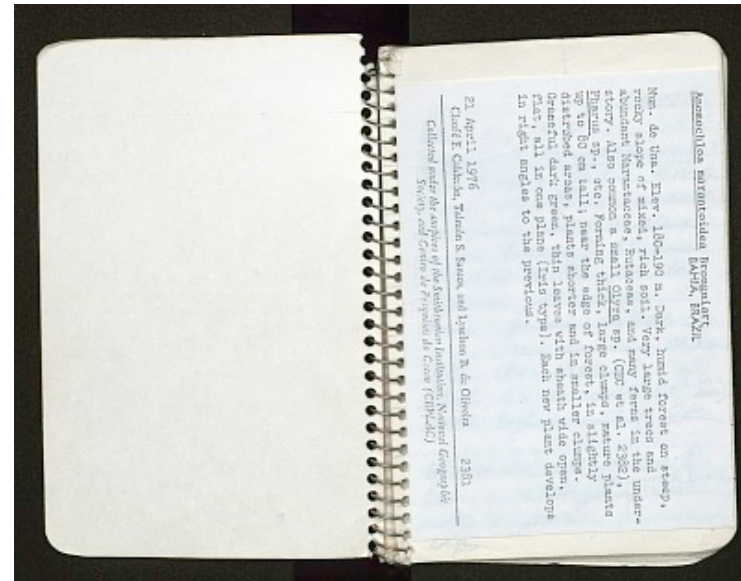 Anomochloa marantoidea Brongniart
BAHIA, BRAZIL
Mun. de Una. Elev. 180-190 m. Dark, humid forest on steep,
rocky slope of mixed, rich soil. Very large trees and
abundant Marantaceae, Rutaceae, and many ferns in the under-
story. Also common a small Olyra sp. (CEC et al. 2382),
Pharus sp., etc. Forming thick, large clumps, mature plants
up to 80 cm tall; near the edge of forest, in slightly
distrubed areas, plants shorter and in smaller clumps.
Graceful dark green, thin leaves with sheath wide open,
flat, all in one plane (Iris type). Each new plant develops
in right angles to the previous.
21 April 1976 2381
Cleofé E. Calderón, Talmón S. Santos, and Lyachon B. de Oliveira
Collected under the auspices of the Smithsonian Institution, National Geographic
Society, and Centro de Pesquisas do Cacau (CEPLAC)